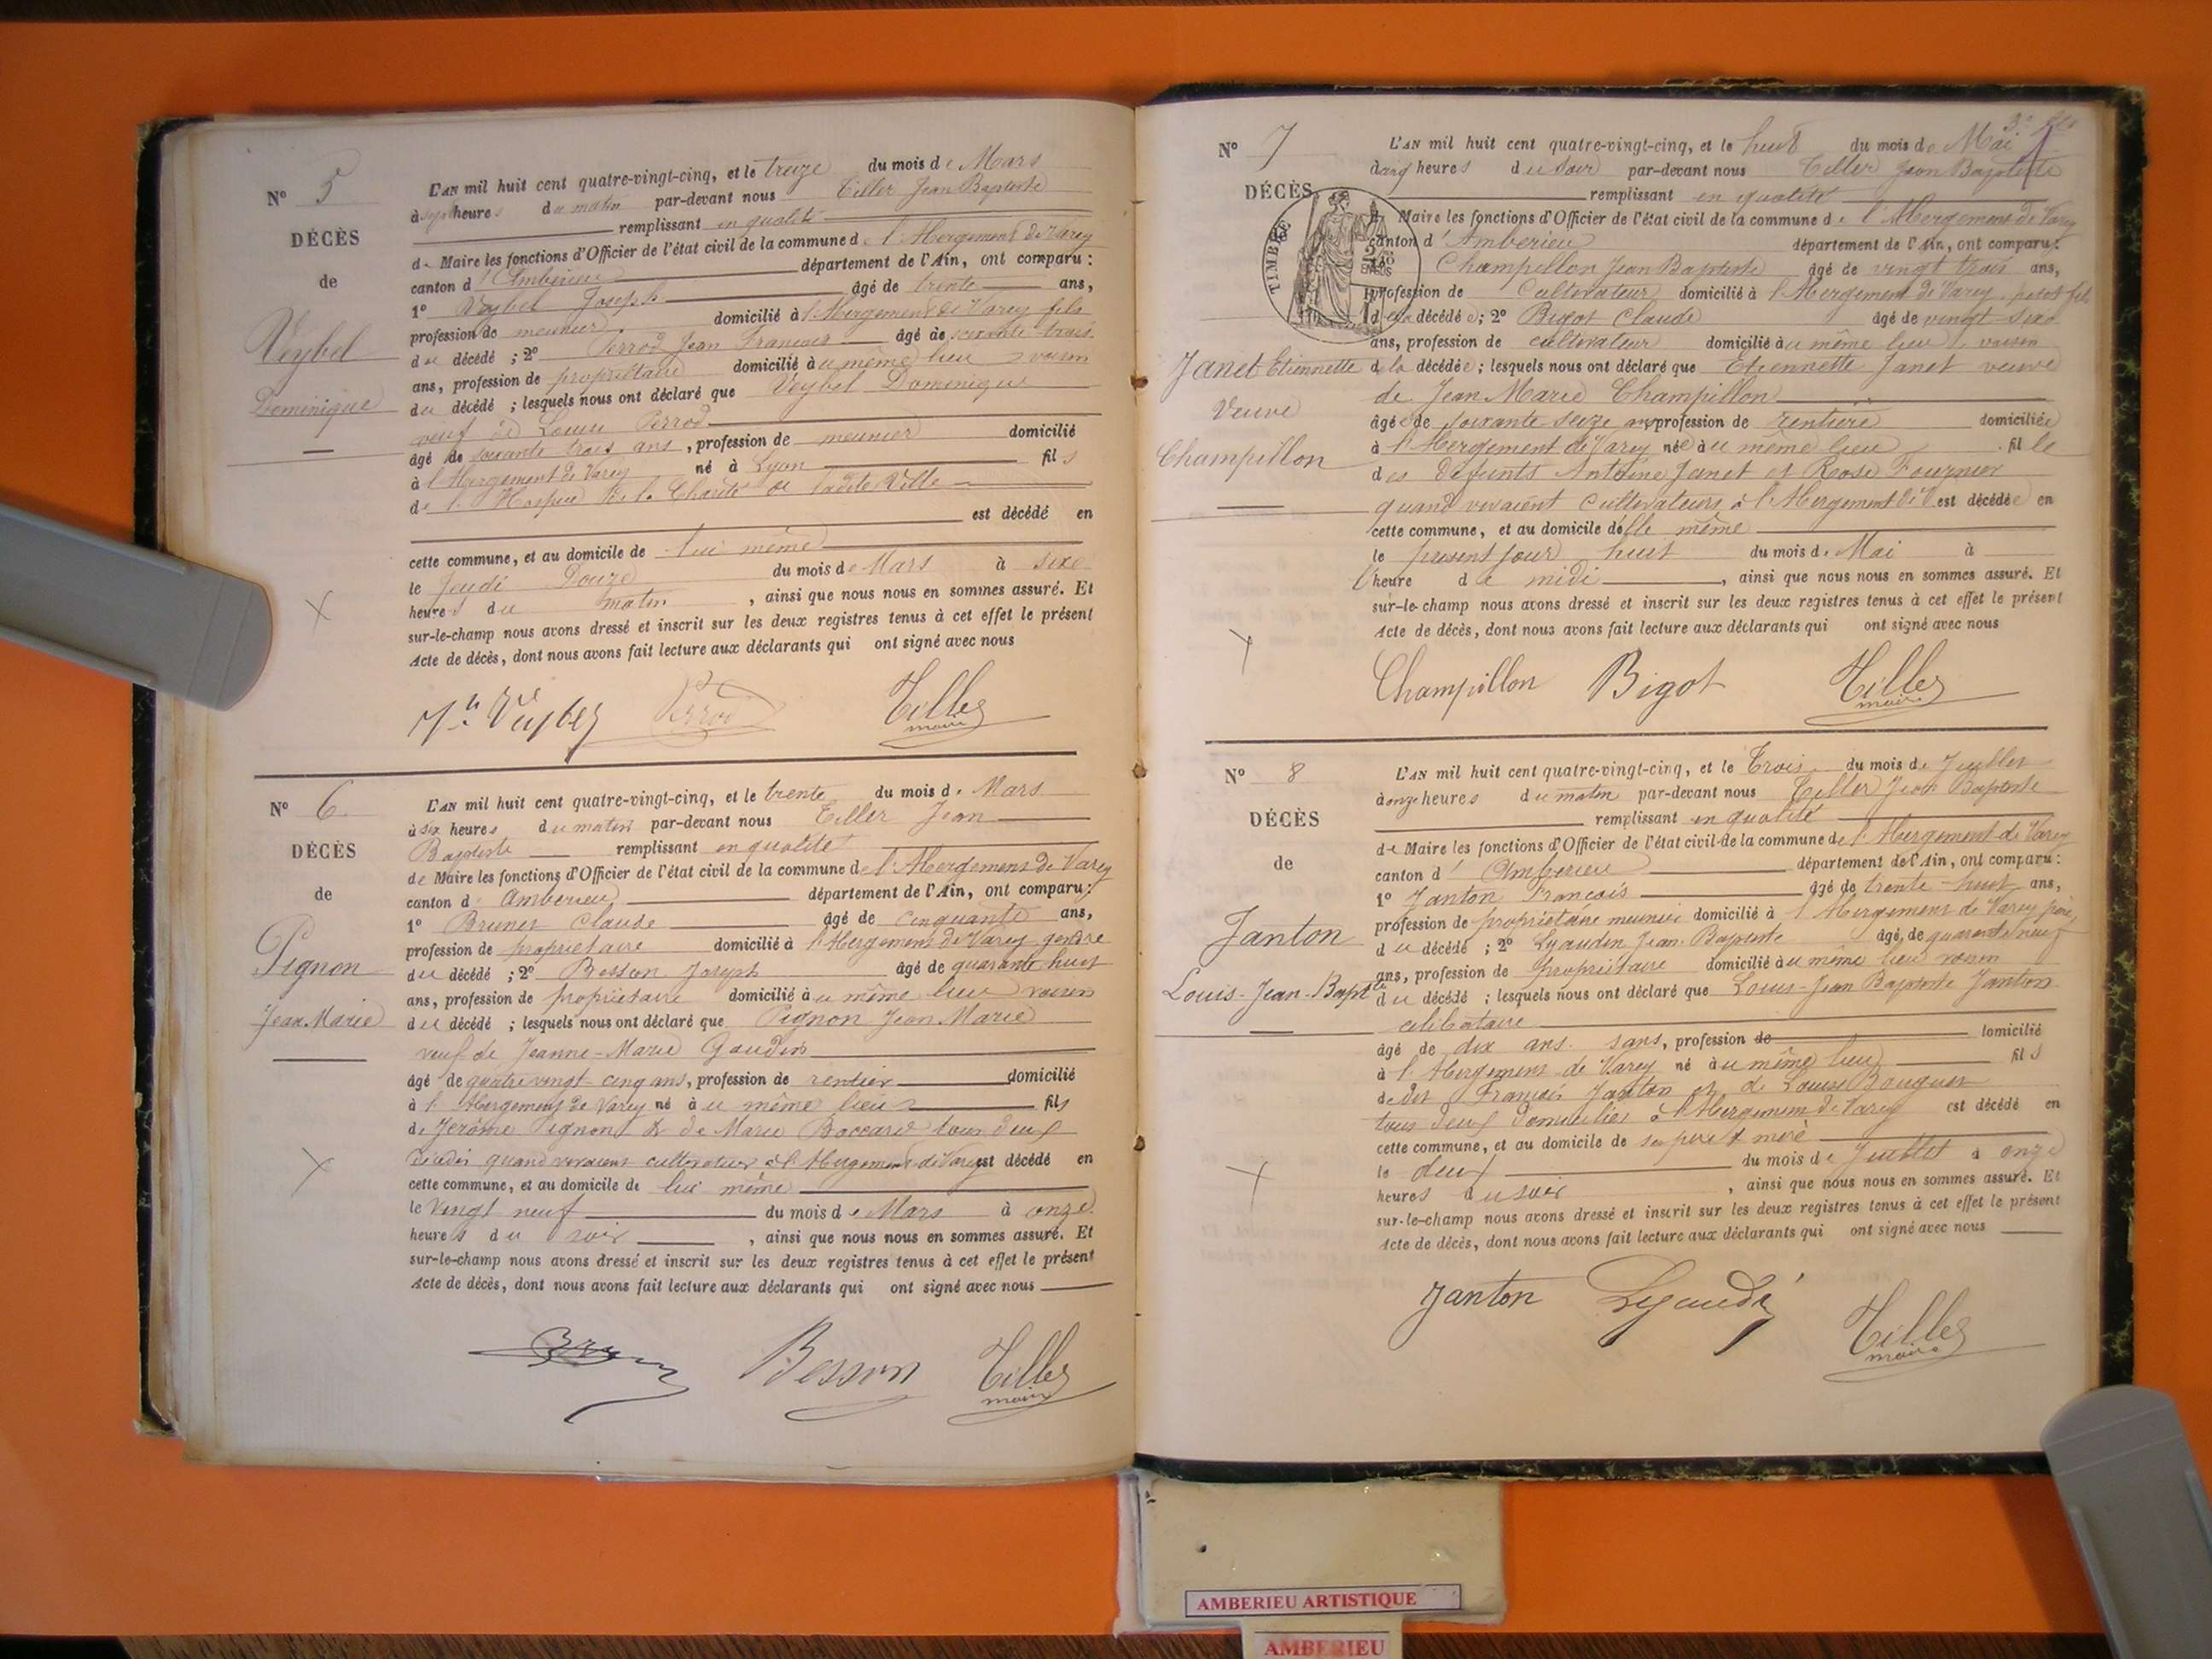 N° 5
DÉCÈS
de
Veybel
Dominique
L'AN mil huit cent quatre-vingt-cinq, et le treize du mois de Mars
à sept heures du matin par-devant nous Tiller Jean Baptiste
remplissant en qualité
de Maire les fonctions d'Officier de l'état civil de la commune de l'Abergement de Varey
canton d'Amberieu département de l'Ain, ont comparu :
1° Veybel Joseph âgé de trente ans,
profession de meunier domicilié à l'Abergement de Varey fils
du décédé ; 2° Perrod Jean François âgé de soixante trois
ans, profession de propriétaire domicilié au même lieu voisin
du décédé ; lesquels nous ont déclaré que Veybel Dominique
veuf de Louise Perrod
âgé de soixante trois ans, profession de meunier domicilié
à l'Abergement de Varey né à Lyon fils
de l'Hospice de la Charité de ladite Ville
est décédé en
cette commune, et au domicile de lui même
le Jeudi Douze du mois de Mars à sixe
heures du matin, ainsi que nous nous en sommes assuré. Et
sur-le-champ nous avons dressé et inscrit sur les deux registres tenus à cet effet le présent
Acte de décès, dont nous avons fait lecture aux déclarants qui ont signé avec nous
Perrod Tiller
maire
N° 6
DÉCÈS
de
Pignon
Jean Marie
L'AN mil huit cent quatre-vingt-cinq, et le trente du mois de Mars
à six heures du matin par-devant nous Tiller Jean
Baptiste remplissant en qualité
de Maire les fonctions d'Officier de l'état civil de la commune de l'Abergement de Varey
canton d'Amberieu département de l'Ain, ont comparu :
1° Brunet Claude âgé de cinquante ans,
profession de propriétaire domicilié à l'Abergement de Varey gendre
du décédé ; 2° Besson Joseph âgé de quarante huit
ans, profession de propriétaire domicilié au même lieu voisin
du décédé ; lesquels nous ont déclaré que Pignon Jean Marie
veuf de Jeanne-Marie Gaudin
âgé de quatre vingt cinq ans, profession de rentier domicilié
à l'Abergement de Varey né au même lieu fils
de Jérôme Pignon & de Marie Boccard tous deux
décédés quand vivaient cultivateurs à l'Abergement de Varey est décédé en
cette commune, et au domicile de lui même
le Vingt neuf du mois de Mars à onze
heures du soir, ainsi que nous nous en sommes assuré. Et
sur-le-champ nous avons dressé et inscrit sur les deux registres tenus à cet effet le présent
Acte de décès, dont nous avons fait lecture aux déclarants qui ont signé avec nous
Besson Tiller
maire
N° 7
DÉCÈS
TIMBRE
Janet Etiennette
Veuve
Champillon
L'AN mil huit cent quatre-vingt-cinq, et le huit du mois de Mai
à cinq heures du soir par-devant nous Tiller Jean Baptiste
remplissant en qualité
Maire les fonctions d'Officier de l'état civil de la commune de l'Abergement de Varey
canton d'Amberieu département de l'Ain, ont comparu :
Champillon Jean Baptiste âgé de vingt trois ans,
profession de Cultivateur domicilié à l'Abergement de Varey petit fils
de la décédée ; 2° Bigot Claude âgé de vingt sixe
ans, profession de cultivateur domicilié au même lieu, voisin
de la décédée ; lesquels nous ont déclaré que Etiennette Janet veuve
de Jean Marie Champillon
âgée de soixante seize ans profession de rentière domiciliée
à l'Abergement de Varey née au même lieu fille
des défunts Antoine Janet et Rose Fournier
quand vivaient Cultivateurs à l'Abergement de V. est décédée en
cette commune, et au domicile d'elle même
le présent jour huit du mois de Mai à
l'heure de midi, ainsi que nous nous en sommes assuré. Et
sur-le-champ nous avons dressé et inscrit sur les deux registres tenus à cet effet le présent
Acte de décès, dont nous avons fait lecture aux déclarants qui ont signé avec nous
Champillon Bigot Tiller
maire
N° 8
DÉCÈS
de
Janton
Louis-Jean-Bapte
L'AN mil huit cent quatre-vingt-cinq, et le Trois du mois de Juillet
à onze heures du matin par-devant nous Tiller Jean Baptiste
remplissant en qualité
de Maire les fonctions d'Officier de l'état civil de la commune de l'Abergement de Varey
canton d'Amberieu département de l'Ain, ont comparu :
1° Janton François âgé de trente-huit ans,
profession de propriétaire meunier domicilié à l'Abergement de Varey père
du décédé ; 2° Lyaudin Jean Baptiste âgé de quarante neuf
ans, profession de propriétaire domicilié au même lieu voisin
du décédé ; lesquels nous ont déclaré que Louis-Jean Baptiste Janton
célibataire
âgé de dix ans, sans, profession de domicilié
à l'Abergement de Varey né au même lieu fils
de dit François Janton et de Louise Bouguet
tous deux domiciliés à l'Abergement de Varey est décédé en
cette commune, et au domicile de ses père & mère
le deux du mois de Juillet à onze
heures du soir, ainsi que nous nous en sommes assuré. Et
sur-le-champ nous avons dressé et inscrit sur les deux registres tenus à cet effet le présent
Acte de décès, dont nous avons fait lecture aux déclarants qui ont signé avec nous
Janton Tiller
maire
AMBERIEU ARTISTIQUE
AMBERIEU